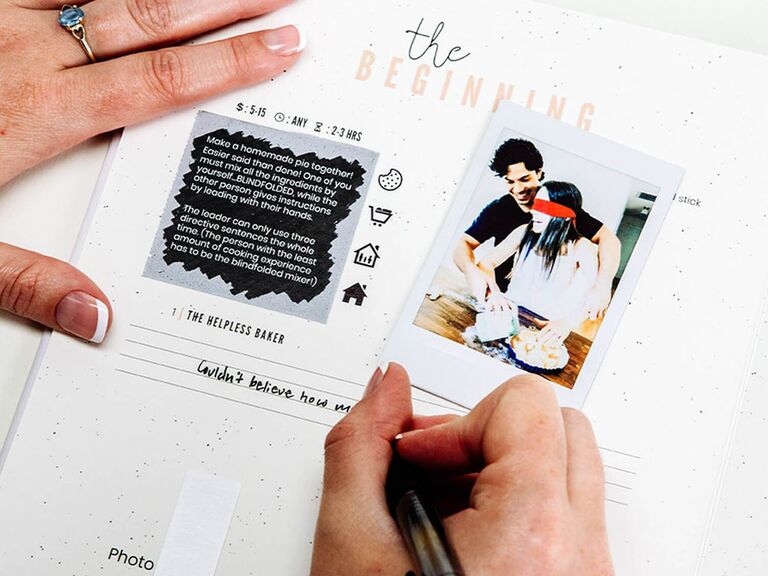 the
BEGINNING
$ : 5-15 : ANY : 2-3 HRS
Make a homemade pie together!
Easier said than done! One of you
must mix all the ingredients by
yourself...BLINDFOLDED, while the
other person gives instructions
by leading with their hands.
The leader can only use three
directive sentences the whole
time. (The person with the least
amount of cooking experience
has to be the blindfolded mixer!)
stick
1 | THE HELPLESS BAKER
Couldn't believe how m
Photo